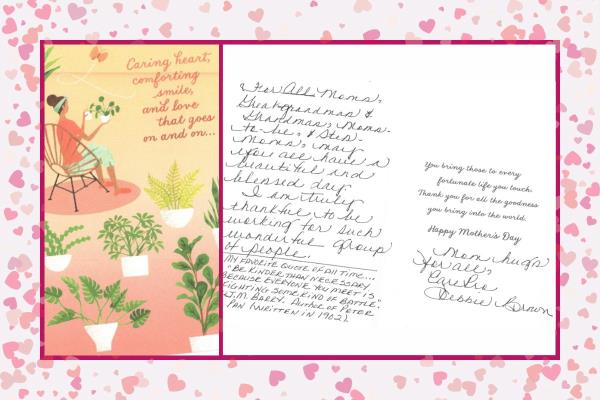 Caring heart,
comforting
smile,
and love
that goes
on and on...
For All Moms,
Greatgrandmas &
Grandmas, Moms-
to-be, & Step-
Moms, may
you all have a
beautiful and
blessed day.
I am truly
thankful to be
working for such
wonderful group
of people.
MY FAVORITE QUOTE OF ALL TIME...
"BE KINDER THAN NECESSARY
BECAUSE EVERYONE YOU MEET IS
FIGHTING SOME KIND OF BATTLE".
J.M. BARRY. Author of PETER
PAN (WRITTEN IN 1902).
You bring those to every
fortunate life you touch.
Thank you for all the goodness
you bring into the world.
Happy Mother's Day
Mom hugs
for all,
CarePro
Debbie Brown